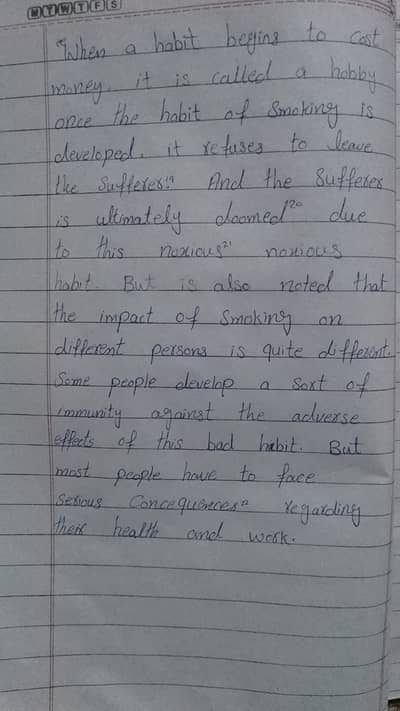 M T W T F S
"When a habit begins to cost
money, it is called a hobby
once the habit of Smoking is
developed, it refuses to leave
the Sufferer.19 And the Sufferer
is ultimately doomed20 due
to this noxious21 noxious
habit. But is also noted that
the impact of Smoking on
different persons is quite different.
Some people develop a sort of
immunity against the adverse
effects of this bad habit. But
most people have to face
serious Concequences22 regarding
their health and work.